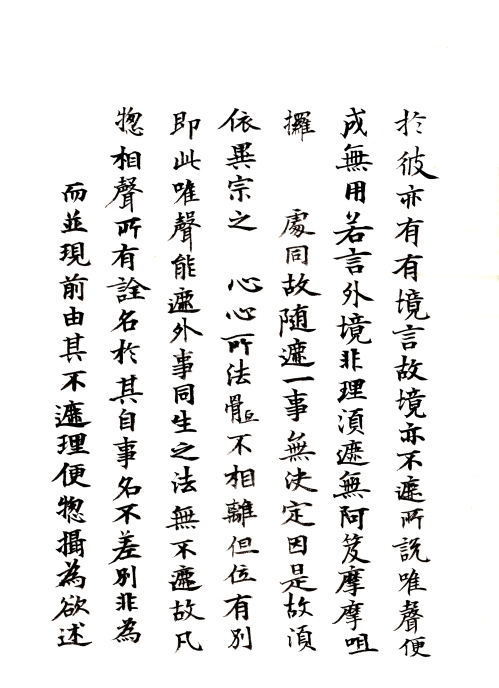 於彼亦有有境言故境亦不遮所説唯聲便
成無用若言外境非理須遮無阿笈摩摩咀
攞　　處同故随遮一事無決定因是故須
依異宗之　心心所法體不相離但位有別
即此唯聲能遮外事同生之法無不遮故凡
惣相聲所有詮名於其自事名不差別非為
而並現前由其不遮理便惣攝為欲述